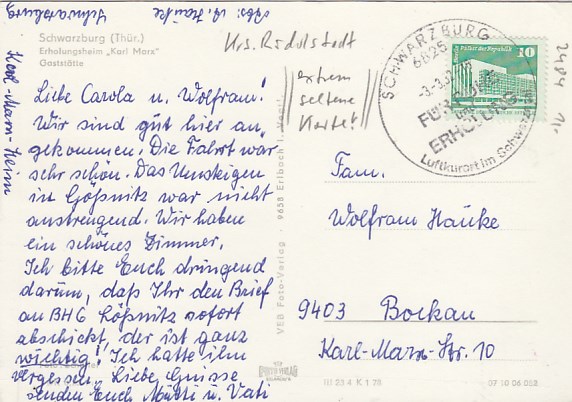 Abs: A. Haucke
Schwarzburg
Karl-Marx-Heim
Schwarzburg (Thür.)
Erholungsheim „Karl Marx"
Gaststätte
Krs. Rudolstadt
extrem
seltene
Karte!
Liebe Carola u. Wolfram!
Wir sind gut hier an-
gekommen. Die Fahrt war
sehr schön. Das Umsteigen
in Gößnitz war nicht
anstrengend. Wir haben
ein schönes Zimmer.
Ich bitte Euch dringend
darum, daß Ihr den Brief
an BHG Lößnitz sofort
abschickt, der ist ganz
wichtig! Ich hatte ihn
vergessen. Liebe Grüsse
senden Euch Mutti u. Vati
VEB Foto-Verlag 9658 Erlbach i. Vogtl.
SCHWARZBURG
6825
FÜR KUR
UND
ERHOLUNG
Luftkurort im Schwarzatal
Palast der Republik
10
2484
Fam.
Wolfram Haucke
9403 Bockau
Karl-Marx-Str. 10
III 23 4 K 1 78
07 10 06 052